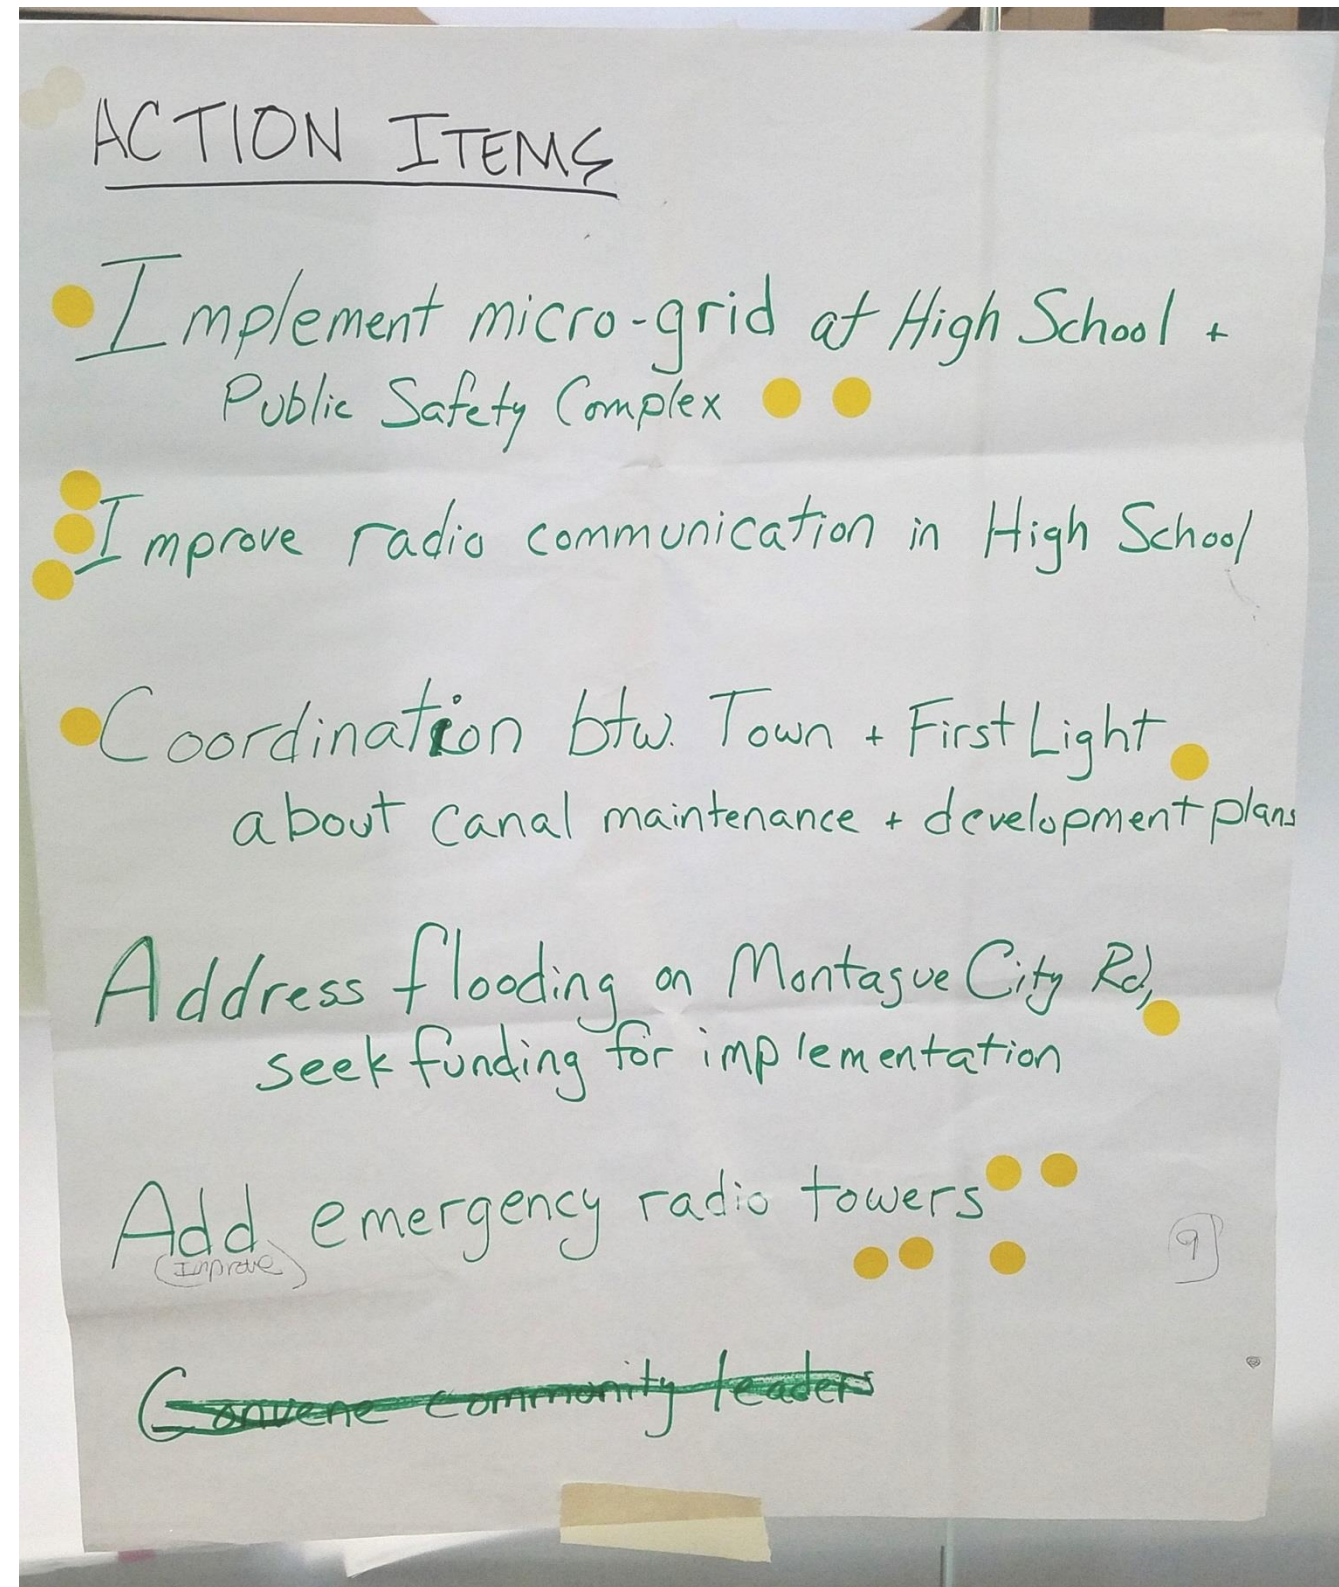 ACTION ITEMS
Implement micro-grid at High School +
Public Safety Complex
Improve radio communication in High School
Coordination btw. Town + FirstLight
about canal maintenance + development plans
Address flooding on Montague City Rd,
seek funding for implementation
Add emergency radio towers
(Improve)
9
Convene community leaders